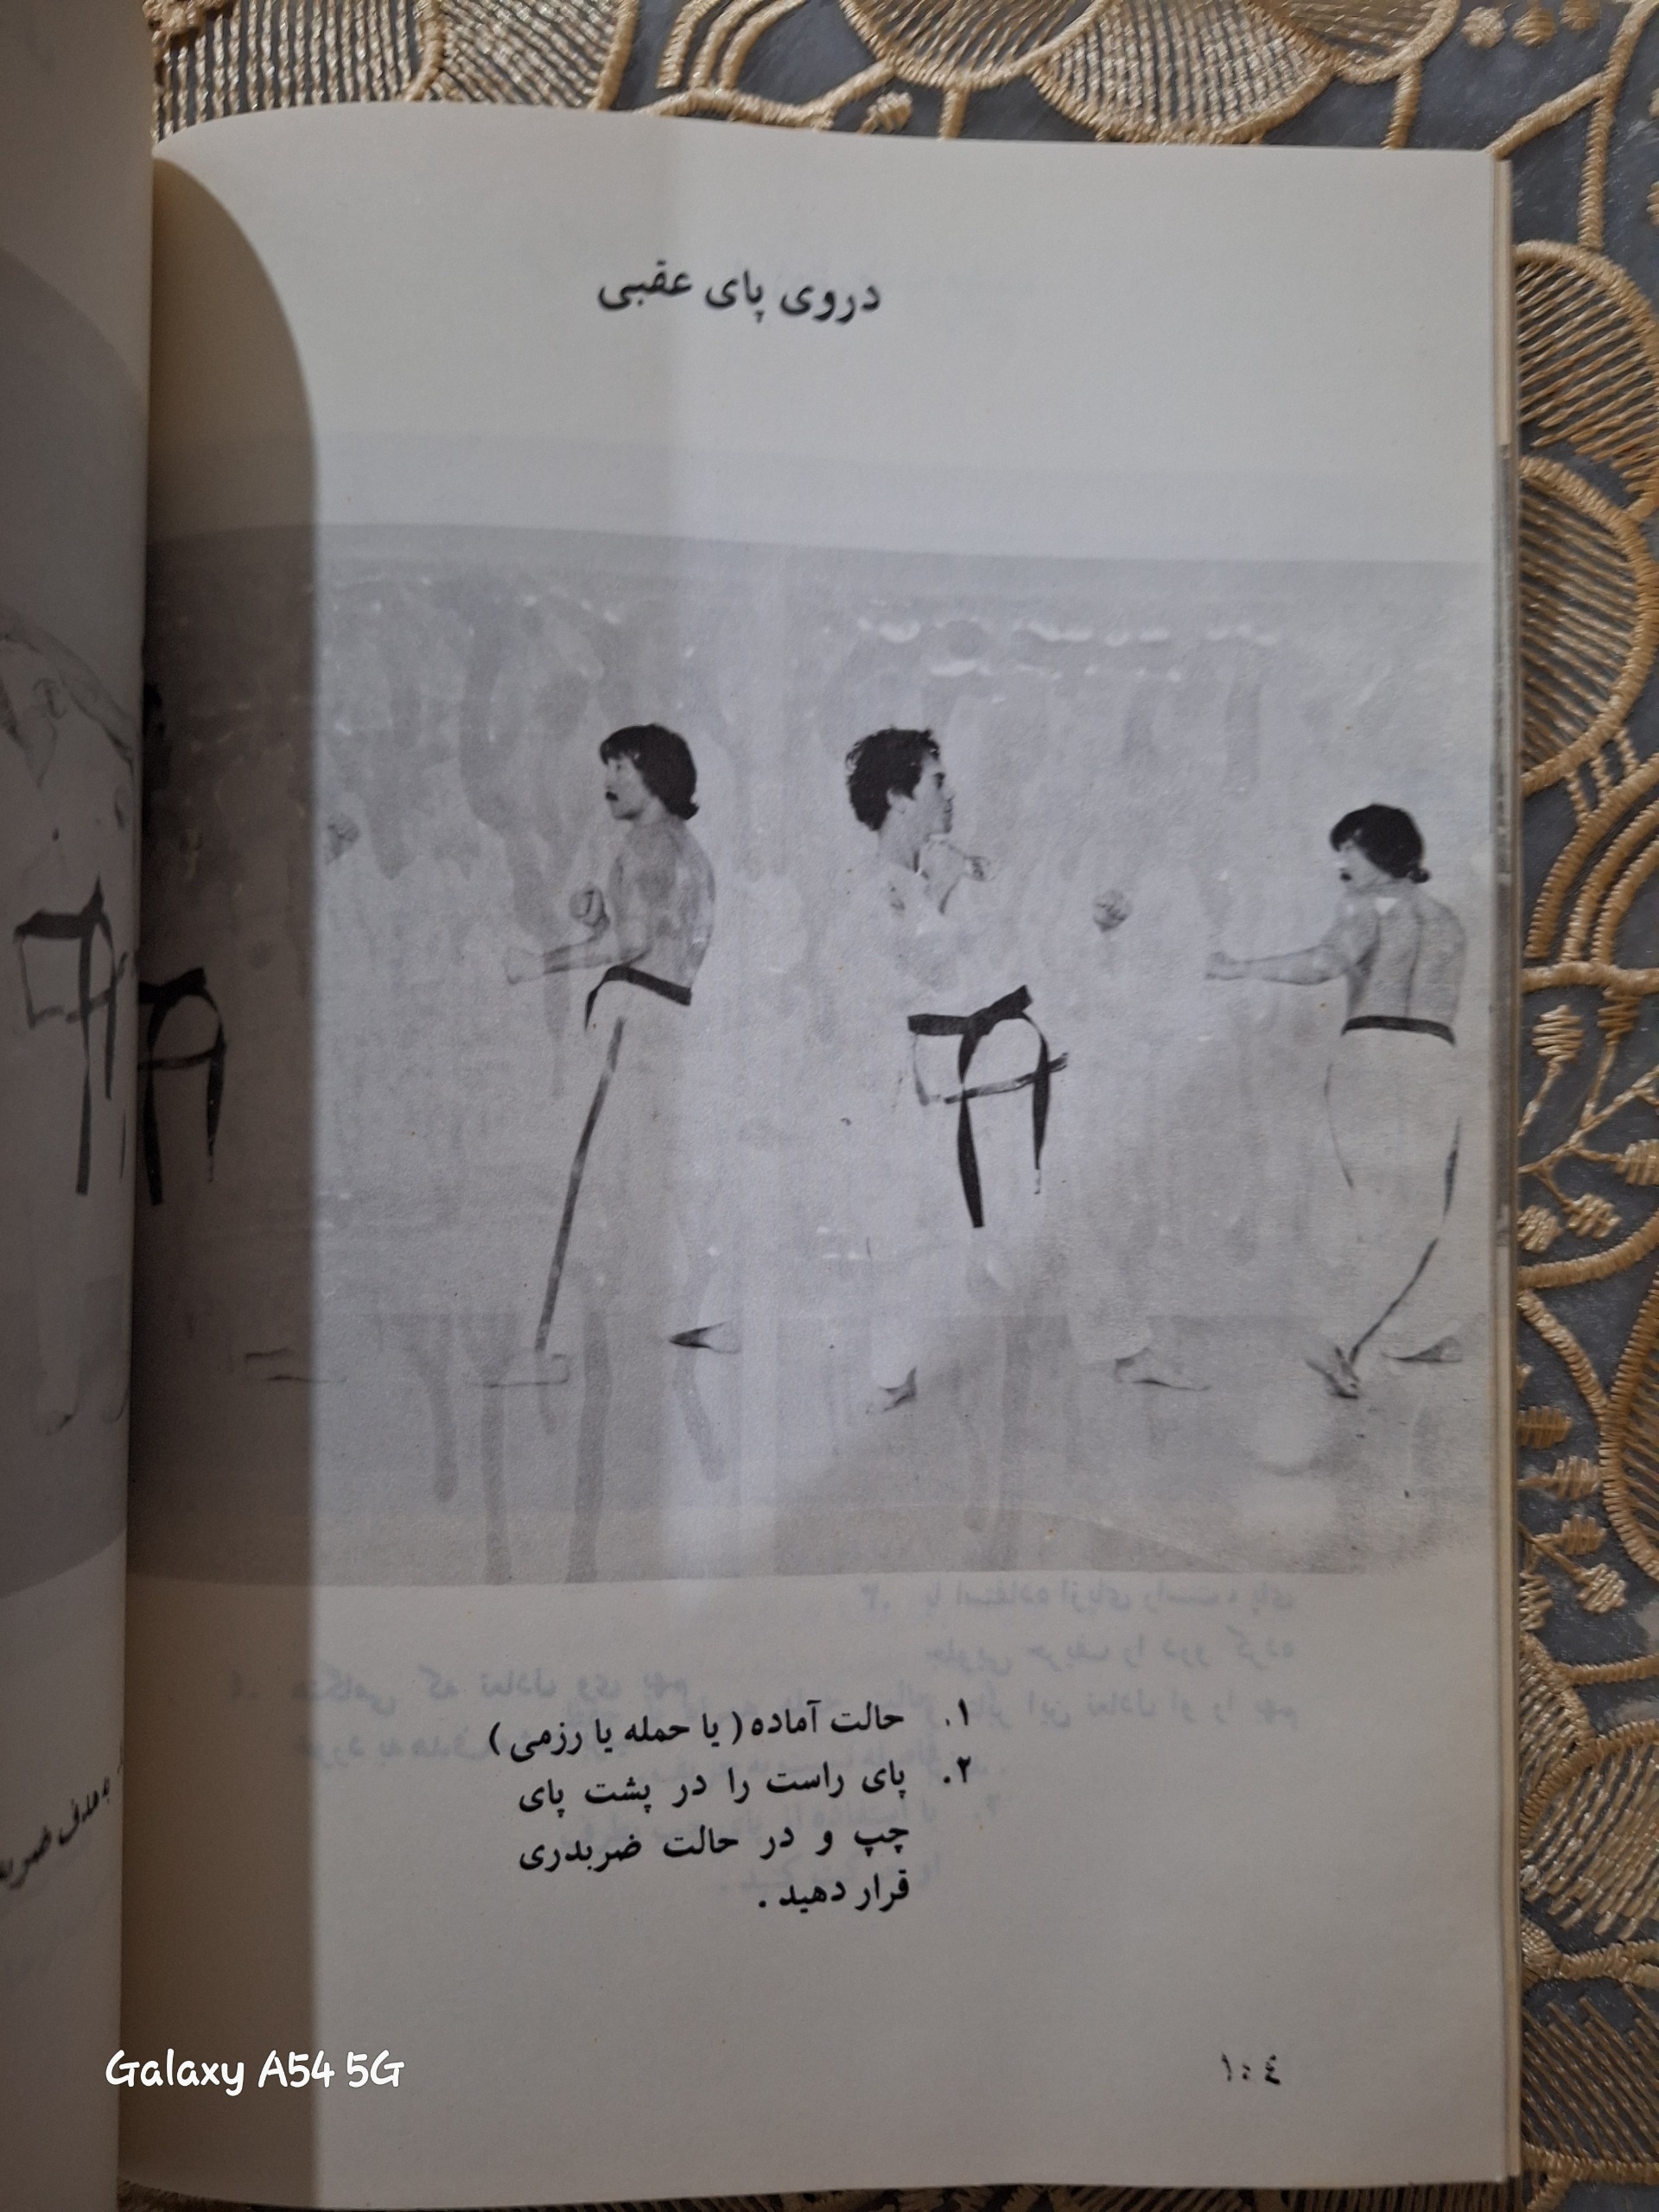 دروی پای عقبی
۱. حالت آماده (یا حمله یا رزمی)
۲. پای راست را در پشت پای
چپ و در حالت ضربدری
قرار دهید.
۱۰۴
به هدف ضربه
Galaxy A54 5G